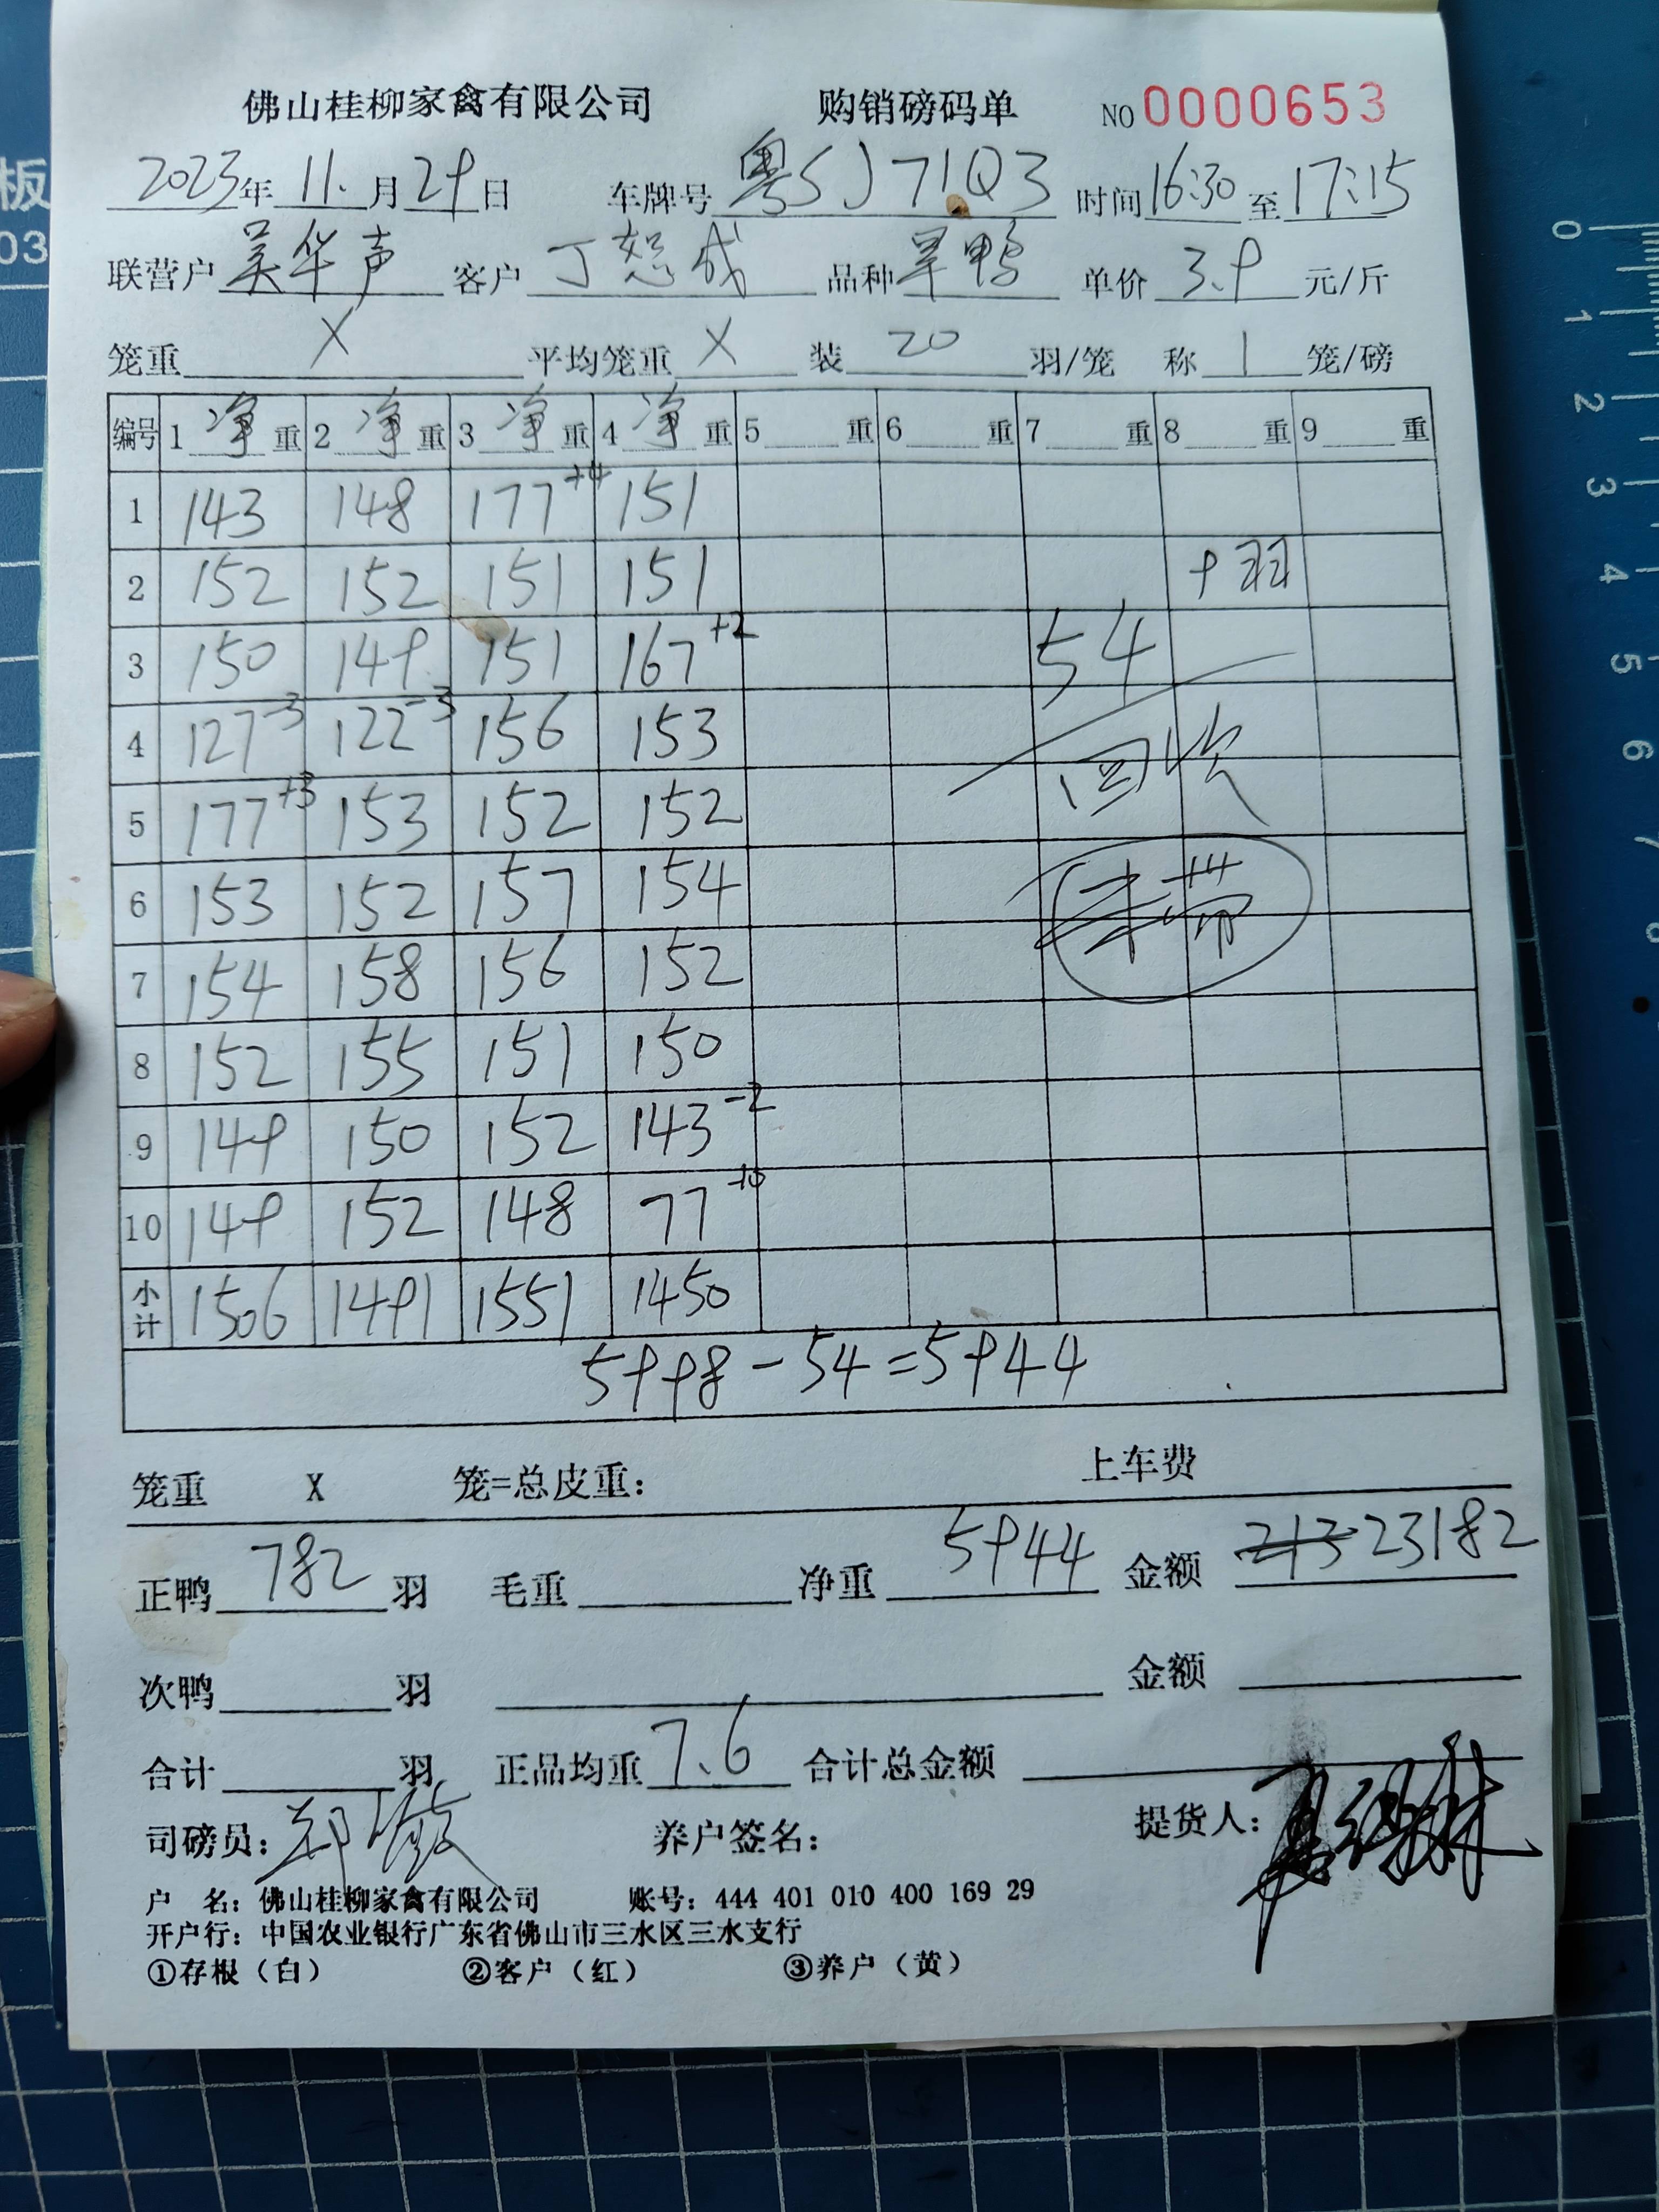 佛山桂柳家禽有限公司 购销磅码单 NO 0000653
2023年 11.月 29日 车牌号 粤SJ71Q3 时间 16:30 至 17:15
联营户 吴华声 客户 丁恕成 品种 旱鸭 单价 3.9 元/斤
笼重 X 平均笼重 X 装 20 羽/笼 称 1 笼/磅
编号 1 净 重 2 净 重 3 净 重 4 净 重 5 重 6 重 7 重 8 重 9 重
1 143 148 177+4 151
2 152 152 151 151 9羽
3 150 149 151 167+2 54
4 127-3 122-3 156 153 回次
5 177+3 153 152 152
6 153 152 157 154 未带
7 154 158 156 152
8 152 155 151 150
9 149 150 152 143-2
10 149 152 148 77-10
小计 1506 1491 1551 1450
5998-54=5944
笼重 X 笼=总皮重: 上车费
正鸭 782 羽 毛重 净重 5944 金额 23182
次鸭 羽 金额
合计 羽 正品均重 7.6 合计总金额
司磅员: 养户签名: 提货人:
户 名: 佛山桂柳家禽有限公司 账号: 444 401 010 400 169 29
开户行: 中国农业银行广东省佛山市三水区三水支行
①存根（白） ②客户（红） ③养户（黄）
板
03
0
1
2
3
4
5
6
7